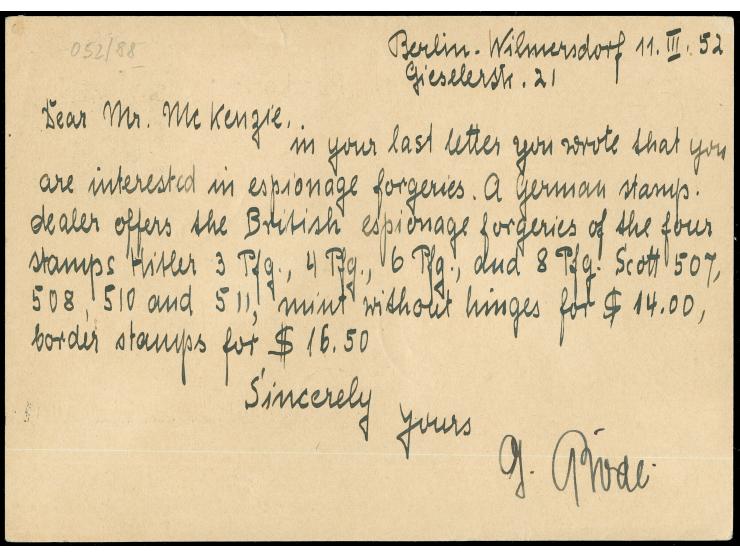 052/88
Berlin-Wilmersdorf 11. III. 52
Gieselerstr. 21
Dear Mr. Mc Kenzie,
in your last letter you wrote that you
are interested in espionage forgeries. A German stamp-
dealer offers the British espionage forgeries of the four
stamps Hitler 3 Pfg., 4 Pfg., 6 Pfg., and 8 Pfg. Scott 507,
508, 510 and 511, mint without hinges for $ 14.00,
border stamps for $ 16.50
Sincerely
yours
G.